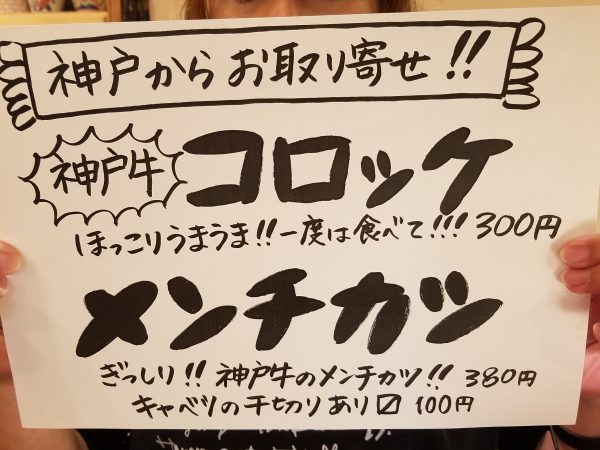 神戸からお取り寄せ!!
神戸牛
コロッケ
ほっこりうまうま!!一度は食べて!!! 300円
メンチカツ
ぎっしり!! 神戸牛のメンチカツ!! 380円
キャベツの千切りあり〼 100円